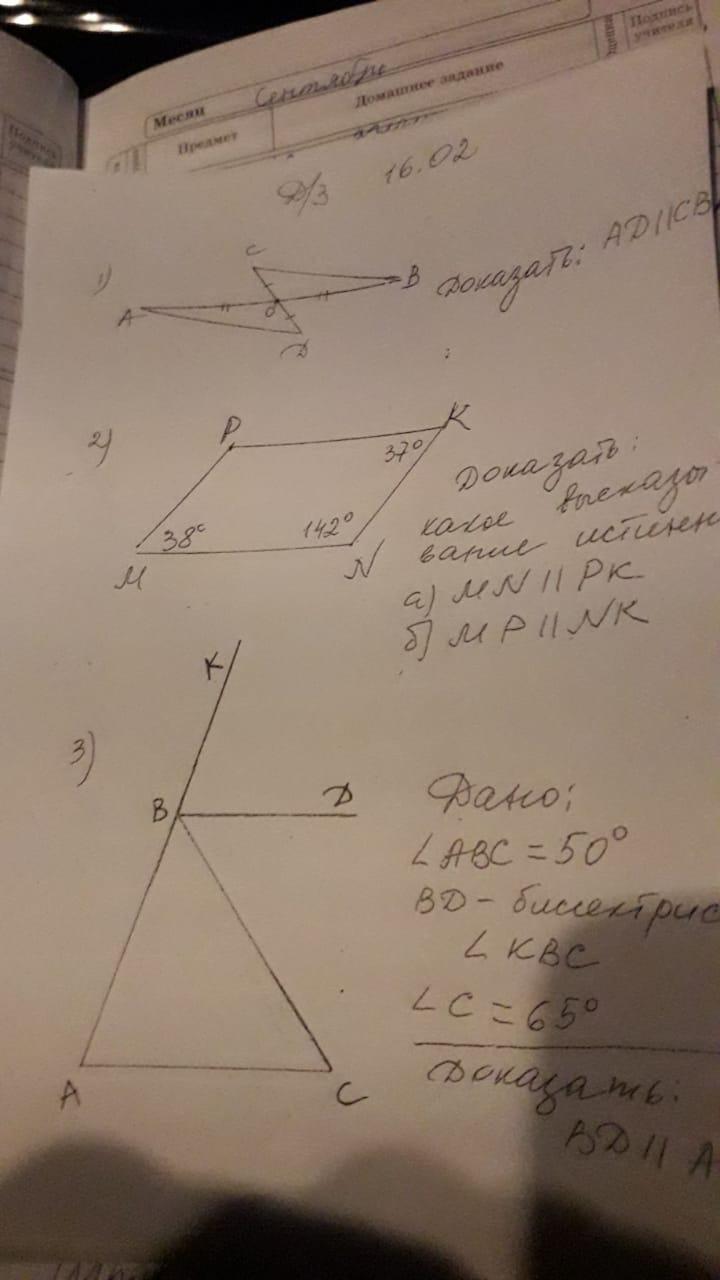 Подпись учителя
Месяц Сентябрь
Предмет
Домашнее задание
Д/З 16.02
1)
C
B
A
O
D
Доказать: AD||CB
2)
P
K
37°
38°
142°
M
N
Доказать:
какое высказы
вание истинн
а) MN || PK
б) MP || NK
3)
K
B
D
A
C
Дано:
∠ABC = 50°
BD - биссектрис
∠KBC
∠C = 65°
Доказать:
BD || A